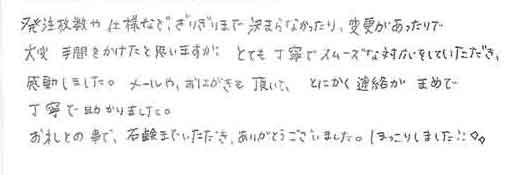 発注枚数や仕様など、ぎりぎりまで決まらなかったり、変更があったりで
大変手間をかけたと思いますが、とても丁寧でスムーズな対応をしていただき、
感動しました。メールや、おはがきも頂いて、とにかく連絡がまめで
丁寧で助かりました。
お礼との事で、石鹸までいただき、ありがとうございました。ほっこりしました!!